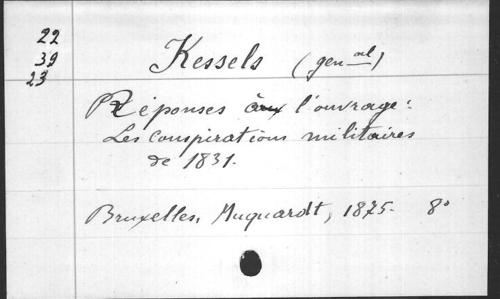 22
39
23
Kessels (genal)
Réponses à l'ouvrage:
Les conspirations militaires
de 1831.
Bruxelles, Muquardt, 1875. 8°